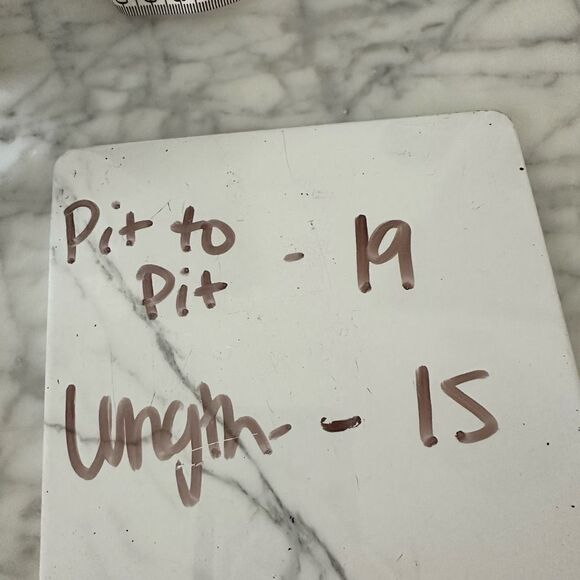 Pit to - 19
Pit
Length - 15